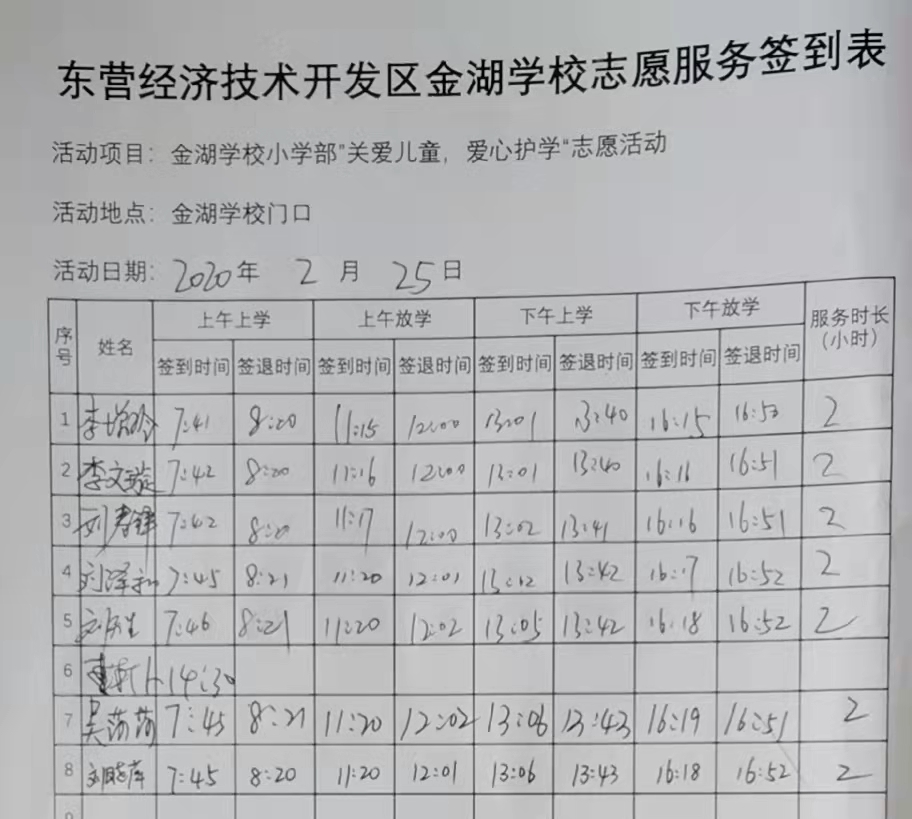 东营经济技术开发区金湖学校志愿服务签到表
活动项目：金湖学校小学部"关爱儿童，爱心护学"志愿活动
活动地点：金湖学校门口
活动日期：2020年 2 月 25日
序号 姓名 上午上学 上午放学 下午上学 下午放学 服务时长（小时）
签到时间 签退时间 签到时间 签退时间 签到时间 签退时间 签到时间 签退时间
1 李增玲 7:41 8:20 11:15 12:00 13:01 13:40 16:15 16:53 2
2 李文璇 7:42 8:20 11:16 12:00 13:01 13:40 16:16 16:51 2
3 刘春锋 7:42 8:20 11:17 12:00 13:02 13:41 16:16 16:51 2
4 刘泽 7:45 8:21 11:20 12:01 13:02 13:42 16:17 16:52 2
5 7:46 8:21 11:20 12:02 13:05 13:42 16:18 16:52 2
6 14:30
7 吴莎莎 7:45 8:21 11:20 12:02 13:06 13:43 16:19 16:51 2
8 刘晓萍 7:45 8:20 11:20 12:01 13:06 13:43 16:18 16:52 2